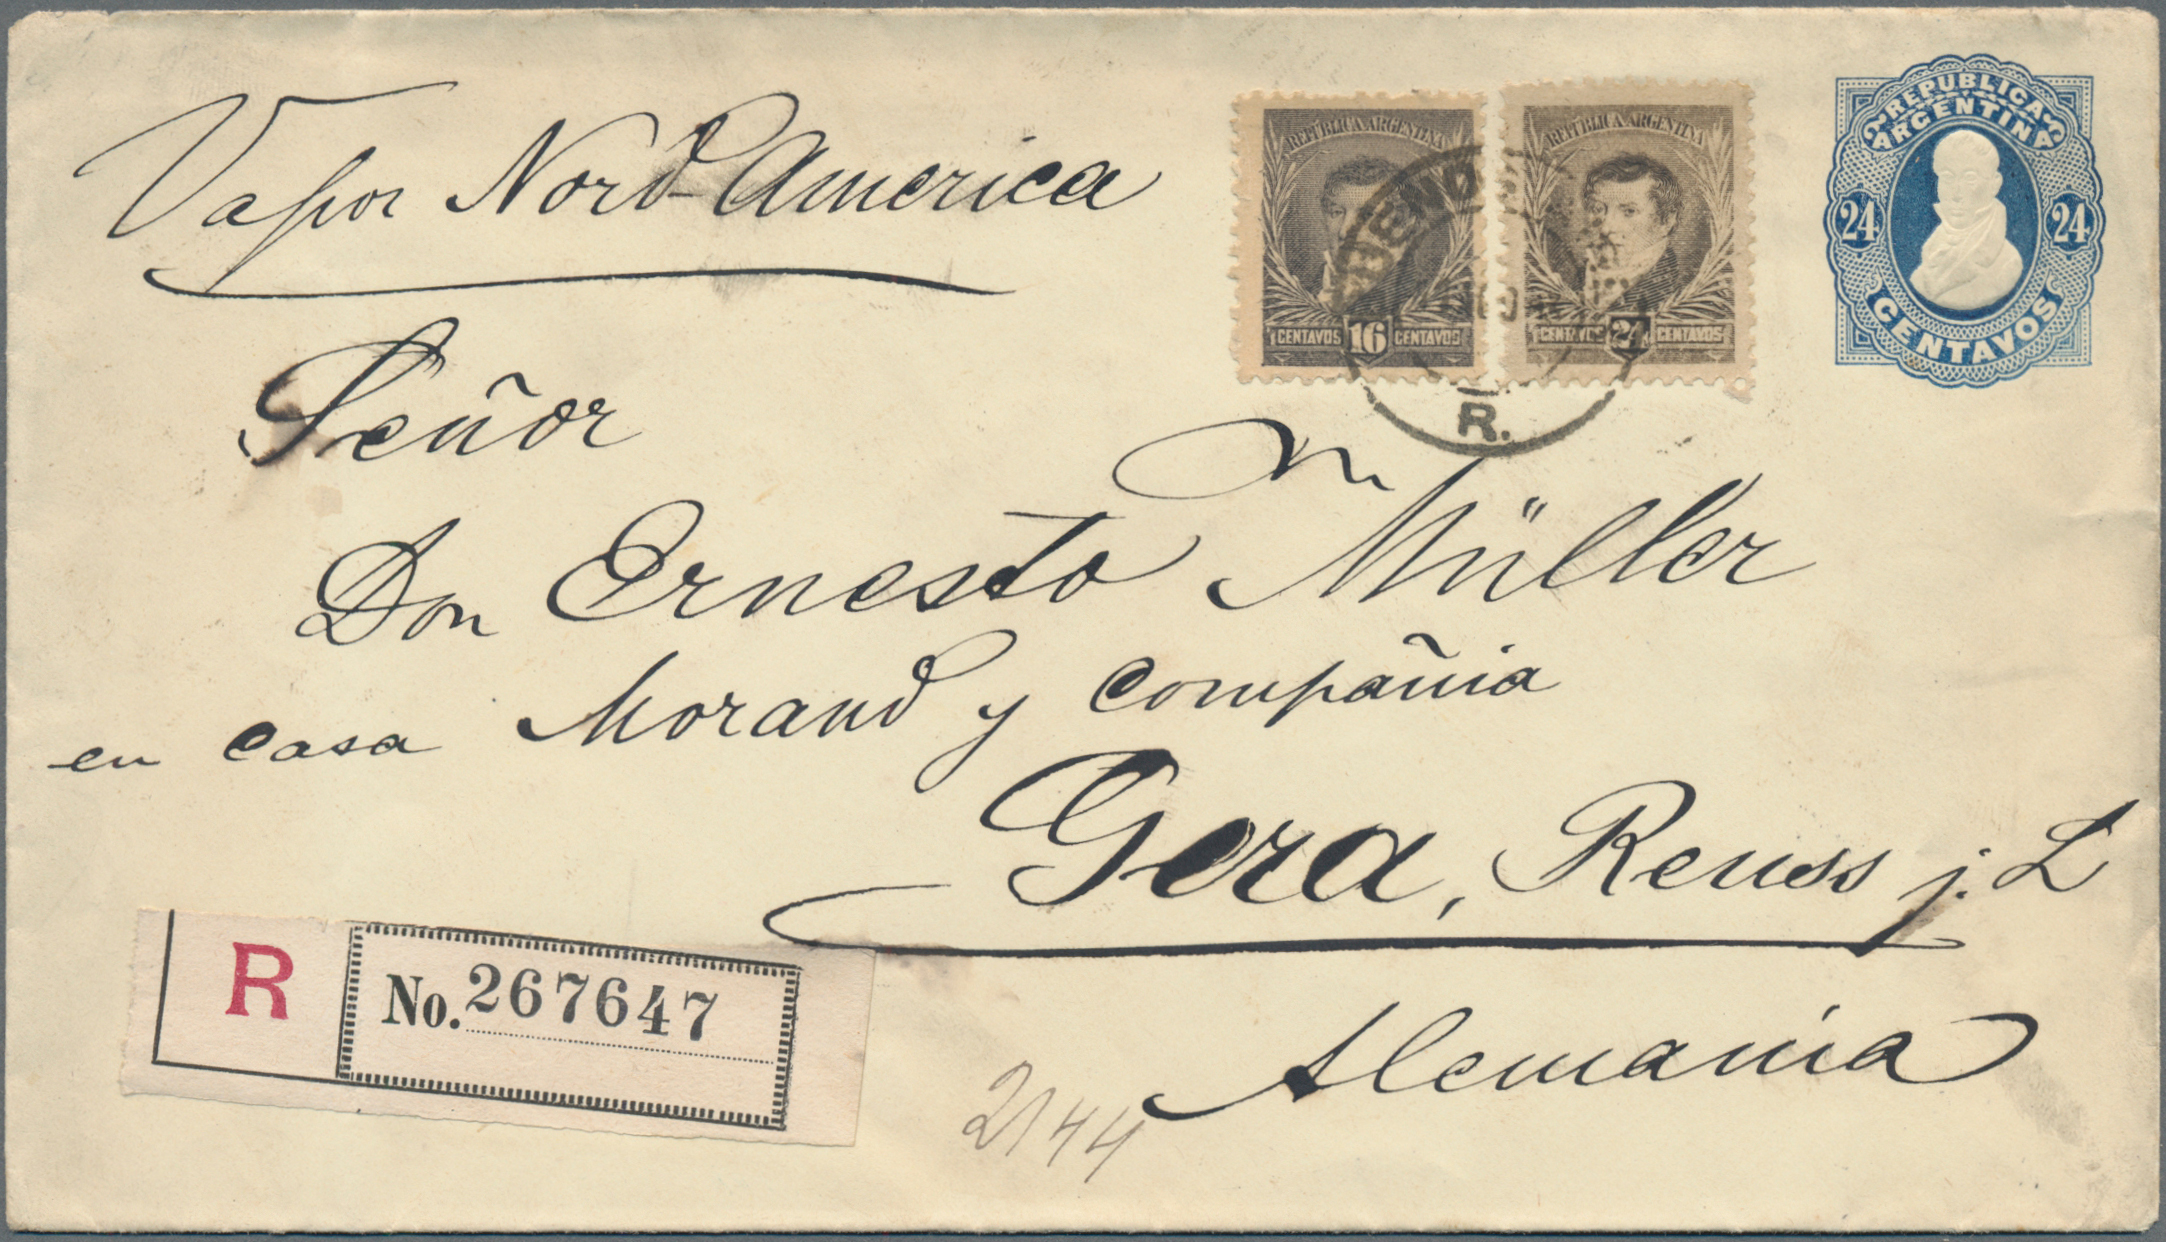 Vapor Nord-America
REPÚBLICA ARGENTINA
CENTAVOS 16 CENTAVOS
REPÚBLICA ARGENTINA
CENTAVOS 24 CENTAVOS
R.
REPUBLICA
ARGENTINA
24 24
CENTAVOS
Señor
Don Ernesto Müller
en casa Morand y Compañia
Gera, Reuss j. L
Alemania
R No. 267647
2144